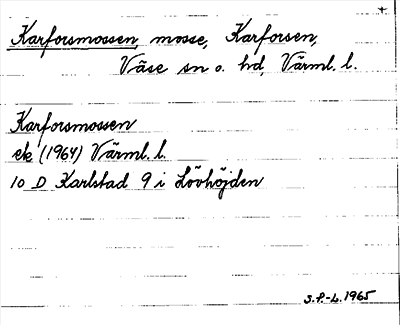 Karforsmossen, mosse, Karforsen,
Väse sn o. hd, Värml. l.
Karforsmossen
ek (1964) Värml. l.
10 D Karlstad 9 i Lövhöjden
S.P.-L. 1965